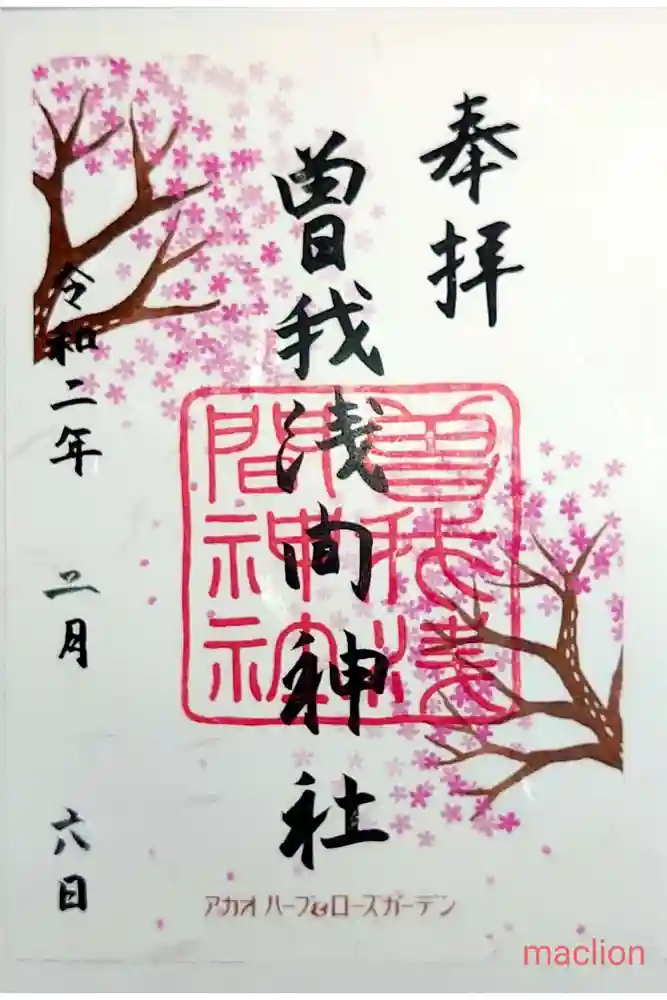 奉拝
曽我浅間神社
曽我浅
間神社
令和二年 二月 六日
アカオ ハーブ&ローズガーデン
maclion